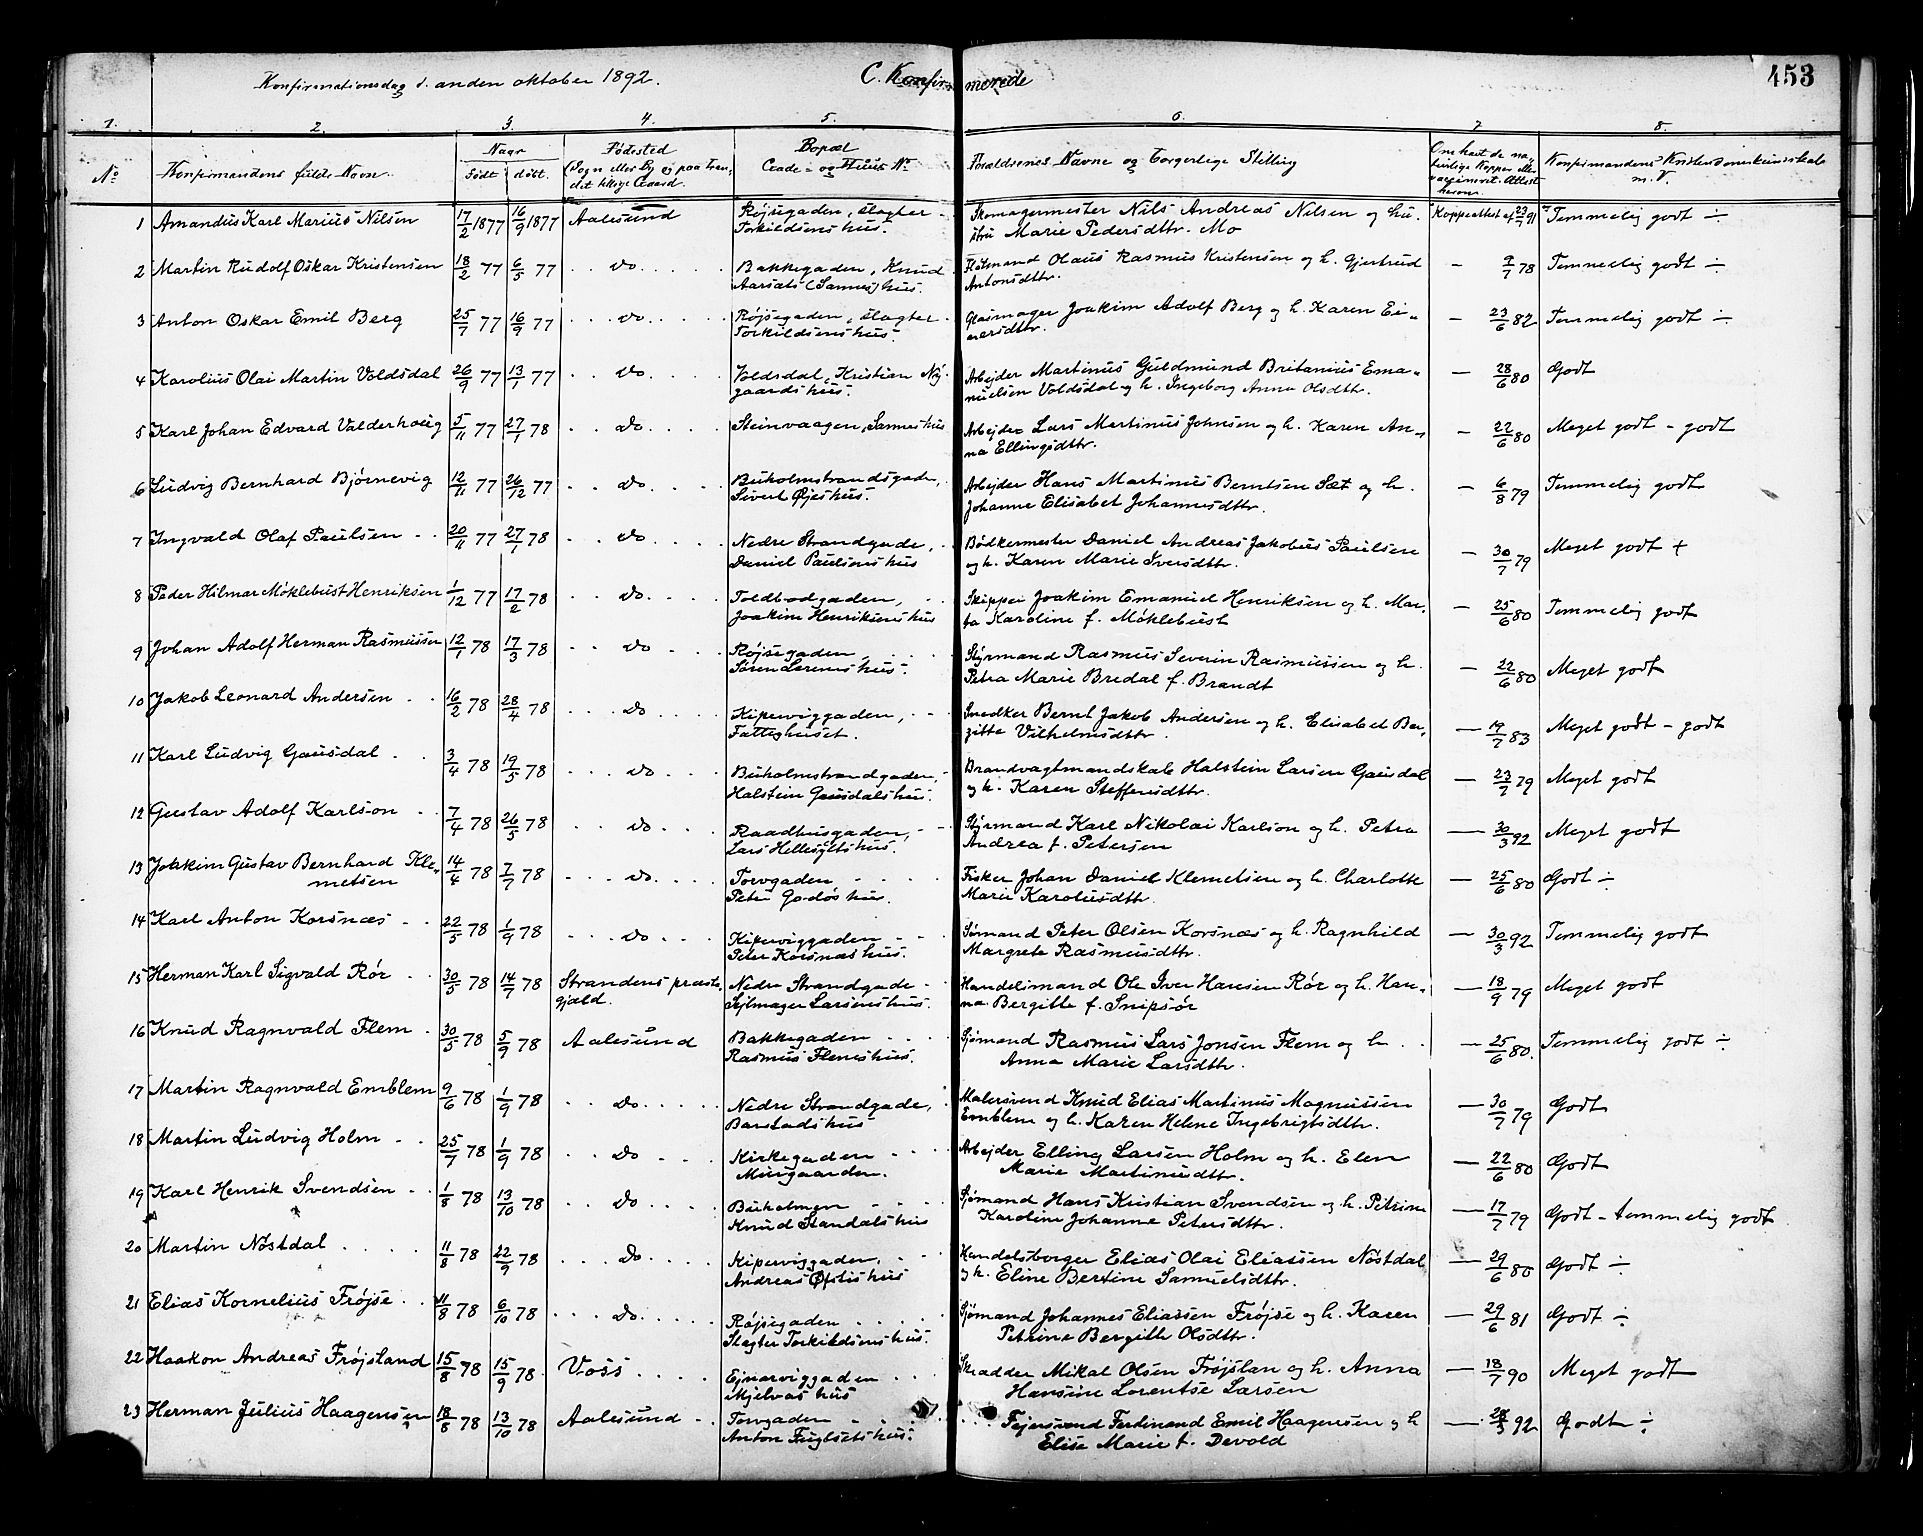 Konfirmationsdag d. anden oktober 1892. C. Konfirmerede 453
1. 2. 3. 4. 5. 6. 7 8.
No Konfirmandens fulde Navn Naar Født døbt. Fødested (Sogn eller By og paa Landet tillige Gaard). Bopæl Gade- og Huus No Forældrenes Navne og borgerlige Stilling Om havt de naturlige Kopper eller vaccineret. Attest herom. Konfirmandens Kristendomskundskab m. V.
1 Amandus Karl Marius Nilsen 17/2 1877 16/9 1877 Aalesund Røjsegaden, slagter Torkildsens hus. Skomagermester Nils Andreas Nilsen og hustru Marie Pedersdttr. Mo Koppeattest af 23/7 91 Temmelig godt ÷
2 Martin Rudolf Oskar Kristensen 18/2 77 6/5 77 do Bakkegaden, Knud Aarsæts (Sannes) hus. Olaus Rasmus Kristensen og h. Gjertrud Antonsdttr. – 9/7 78 Temmelig godt ÷
3 Anton Oskar Emil Berg 25/7 77 16/9 77 do Røjsegaden, slagter Torkildsens hus. Glasmager Joakim Adolf Berg og h. Karen Einersdttr. – 23/6 82 Temmelig godt ÷
4 Karolius Olai Martin Voldsdal 26/9 77 13/1 77 do Voldsdal, Kristian Nygaards hus. Arbejder Martinus Guldmund Britanius Emanuelsen Voldsdal og h. Ingeborg Anna Olsdttr. – 28/6 80 Godt
5 Karl Johan Edvard Valderhaug 5/11 77 27/1 78 do Steinvaagen, Sannes hus Arbejder Lars Martinus Johnsen og h. Karen Anna Ellingsdttr. – 22/6 80 Meget godt – godt
6 Ludvig Bernhard Bjørnevig 12/11 77 26/12 77 do Buholmstrandsgade, Sivert Øjes hus. Arbejder Hans Martinus Berntsen Sæt og h. Johanne Elisabet Johannesdttr. – 6/8 79 Temmelig godt
7 Ingvald Olaf Paulsen 20/11 77 27/1 78 do Nedre Strandgade, Daniel Paulsens hus Bødkermester Daniel Andreas Jakobus Paulsen og h. Karen Marie Iversdttr. – 30/7 79 Meget godt +
8 Peder Hilmar Møklebust Henriksen 1/12 77 17/2 78 do Toldbodgaden, Joakim Henriksens hus Skipper Joakim Emanuel Henriksen og h. Marta Karoline f. Møklebust – 25/6 80 Temmelig godt
9 Johan Adolf Herman Rasmussen 12/1 78 17/3 78 do Røjsegaden, Søren Lorens hus. Styrmand Rasmus Severin Rasmussen og h. Petra Marie Bredal f. Brandt – 22/6 80 Meget godt
10 Jakob Leonard Andersen 16/2 78 28/4 78 do Kiperviggaden, Fattighuset. Snedker Bernt Jakob Andersen og h. Elisabet Bergitte Vilhelmsdttr. – 19/7 83 Meget godt – godt
11 Karl Ludvig Gausdal 3/4 78 19/5 78 do Buholmstrandgaden, Halstein Gausdals hus. Brandvagtmandskab Halstein Larsen Gausdal og h. Karen Steffensdttr. – 23/7 79 Meget godt
12 Gustav Adolf Karlson 7/4 78 26/5 78 do Raadhusgaden, Lars Hellesylts hus. Styrmand Karl Nikolai Karlson og h. Petra Andrea f. Petersen – 30/3 92 Meget godt
13 Joakim Gustav Bernhard Klemetsen 14/4 78 7/7 78 do Torvgaden Peter Godøs hus. Fisker Johan Daniel Klemetsen og h. Charlotte Marie Karolusdttr. – 25/6 80 Godt ÷
14 Karl Anton Korsnæs 22/5 78 1/9 78 do Kiperviggaden Peter Korsnæs hus. Sømand Peter Olsen Korsnæs og h. Ragnhild Margrete Rasmusdttr. – 30/3 92 Temmelig godt
15 Herman Karl Sigvald Rør 30/5 78 14/7 78 Strandens præstegjæld. Nedre Strandgade Sejlmager Larsens hus. Handelsmand Ole Iver Hansen Rør og h. Hanna Bergitte f. Snipsør – 18/9 79 Meget godt
16 Knud Ragnvald Flem 30/5 78 5/9 78 Aalesund Bakkegaden Rasmus Flems hus. Sjømand Rasmus Lars Jonsen Flem og h. Anna Marie Larsdttr. – 25/6 80. Temmelig godt ÷
17 Martin Ragnvald Emblem 9/6 78 1/9 78 do Nedre Strandgade, Barstads hus Malersvend Knud Elias Martinus Magnussen Emblem og h. Karen Helene Ingebrigtsdttr. – 30/7 79 Godt
18 Martin Ludvig Holm 25/7 78 1/9 78 do Kirkegaden Murgaarden. Arbejder Elling Larsen Holm og h. Elen Marie Martinusdttr. – 22/6 80 Godt
19 Karl Henrik Svendsen 1/8 78 13/10 78 do Buholmen Knud Standals hus Sjømand Hans Kristian Svendsen og h. Petrine Karoline Johanne Petersdttr. – 17/7 79 Godt – temmelig godt
20 Martin Nøstdal 11/8 78 22/9 78 do Kiperviggaden, Andreas Øfstis hus Handelsborger Elias Olai Eliassen Nøstdal og h. Eline Bertine Samuelsdttr. – 29/6 80 Godt ÷
21 Elias Kornelius Frøjse 11/8 78 6/10 78 do Røjsegaden Slagter Torkildsens hus. Sjømand Johannes Eliassen Frøjse og h. Karen Petrine Bergitte Olsdttr. – 29/6 81 Godt ÷
22 Haakon Andreas Frøjsland 15/8 78 15/9 78 Voss Ejnarviggaden Mjelvas hus Skrædder Mikal Olsen Frøjslan og h. Anna Hansine Lorentse Larsen – 18/7 90 Meget godt
23 Herman Julius Haagensen 18/8 78 13/10 78 Aalesund Torvgaden Anton Fuglsets hus. Fejersvend Ferdinand Emil Haagensen og h Elise Marie f. Devold – 92 Godt ÷